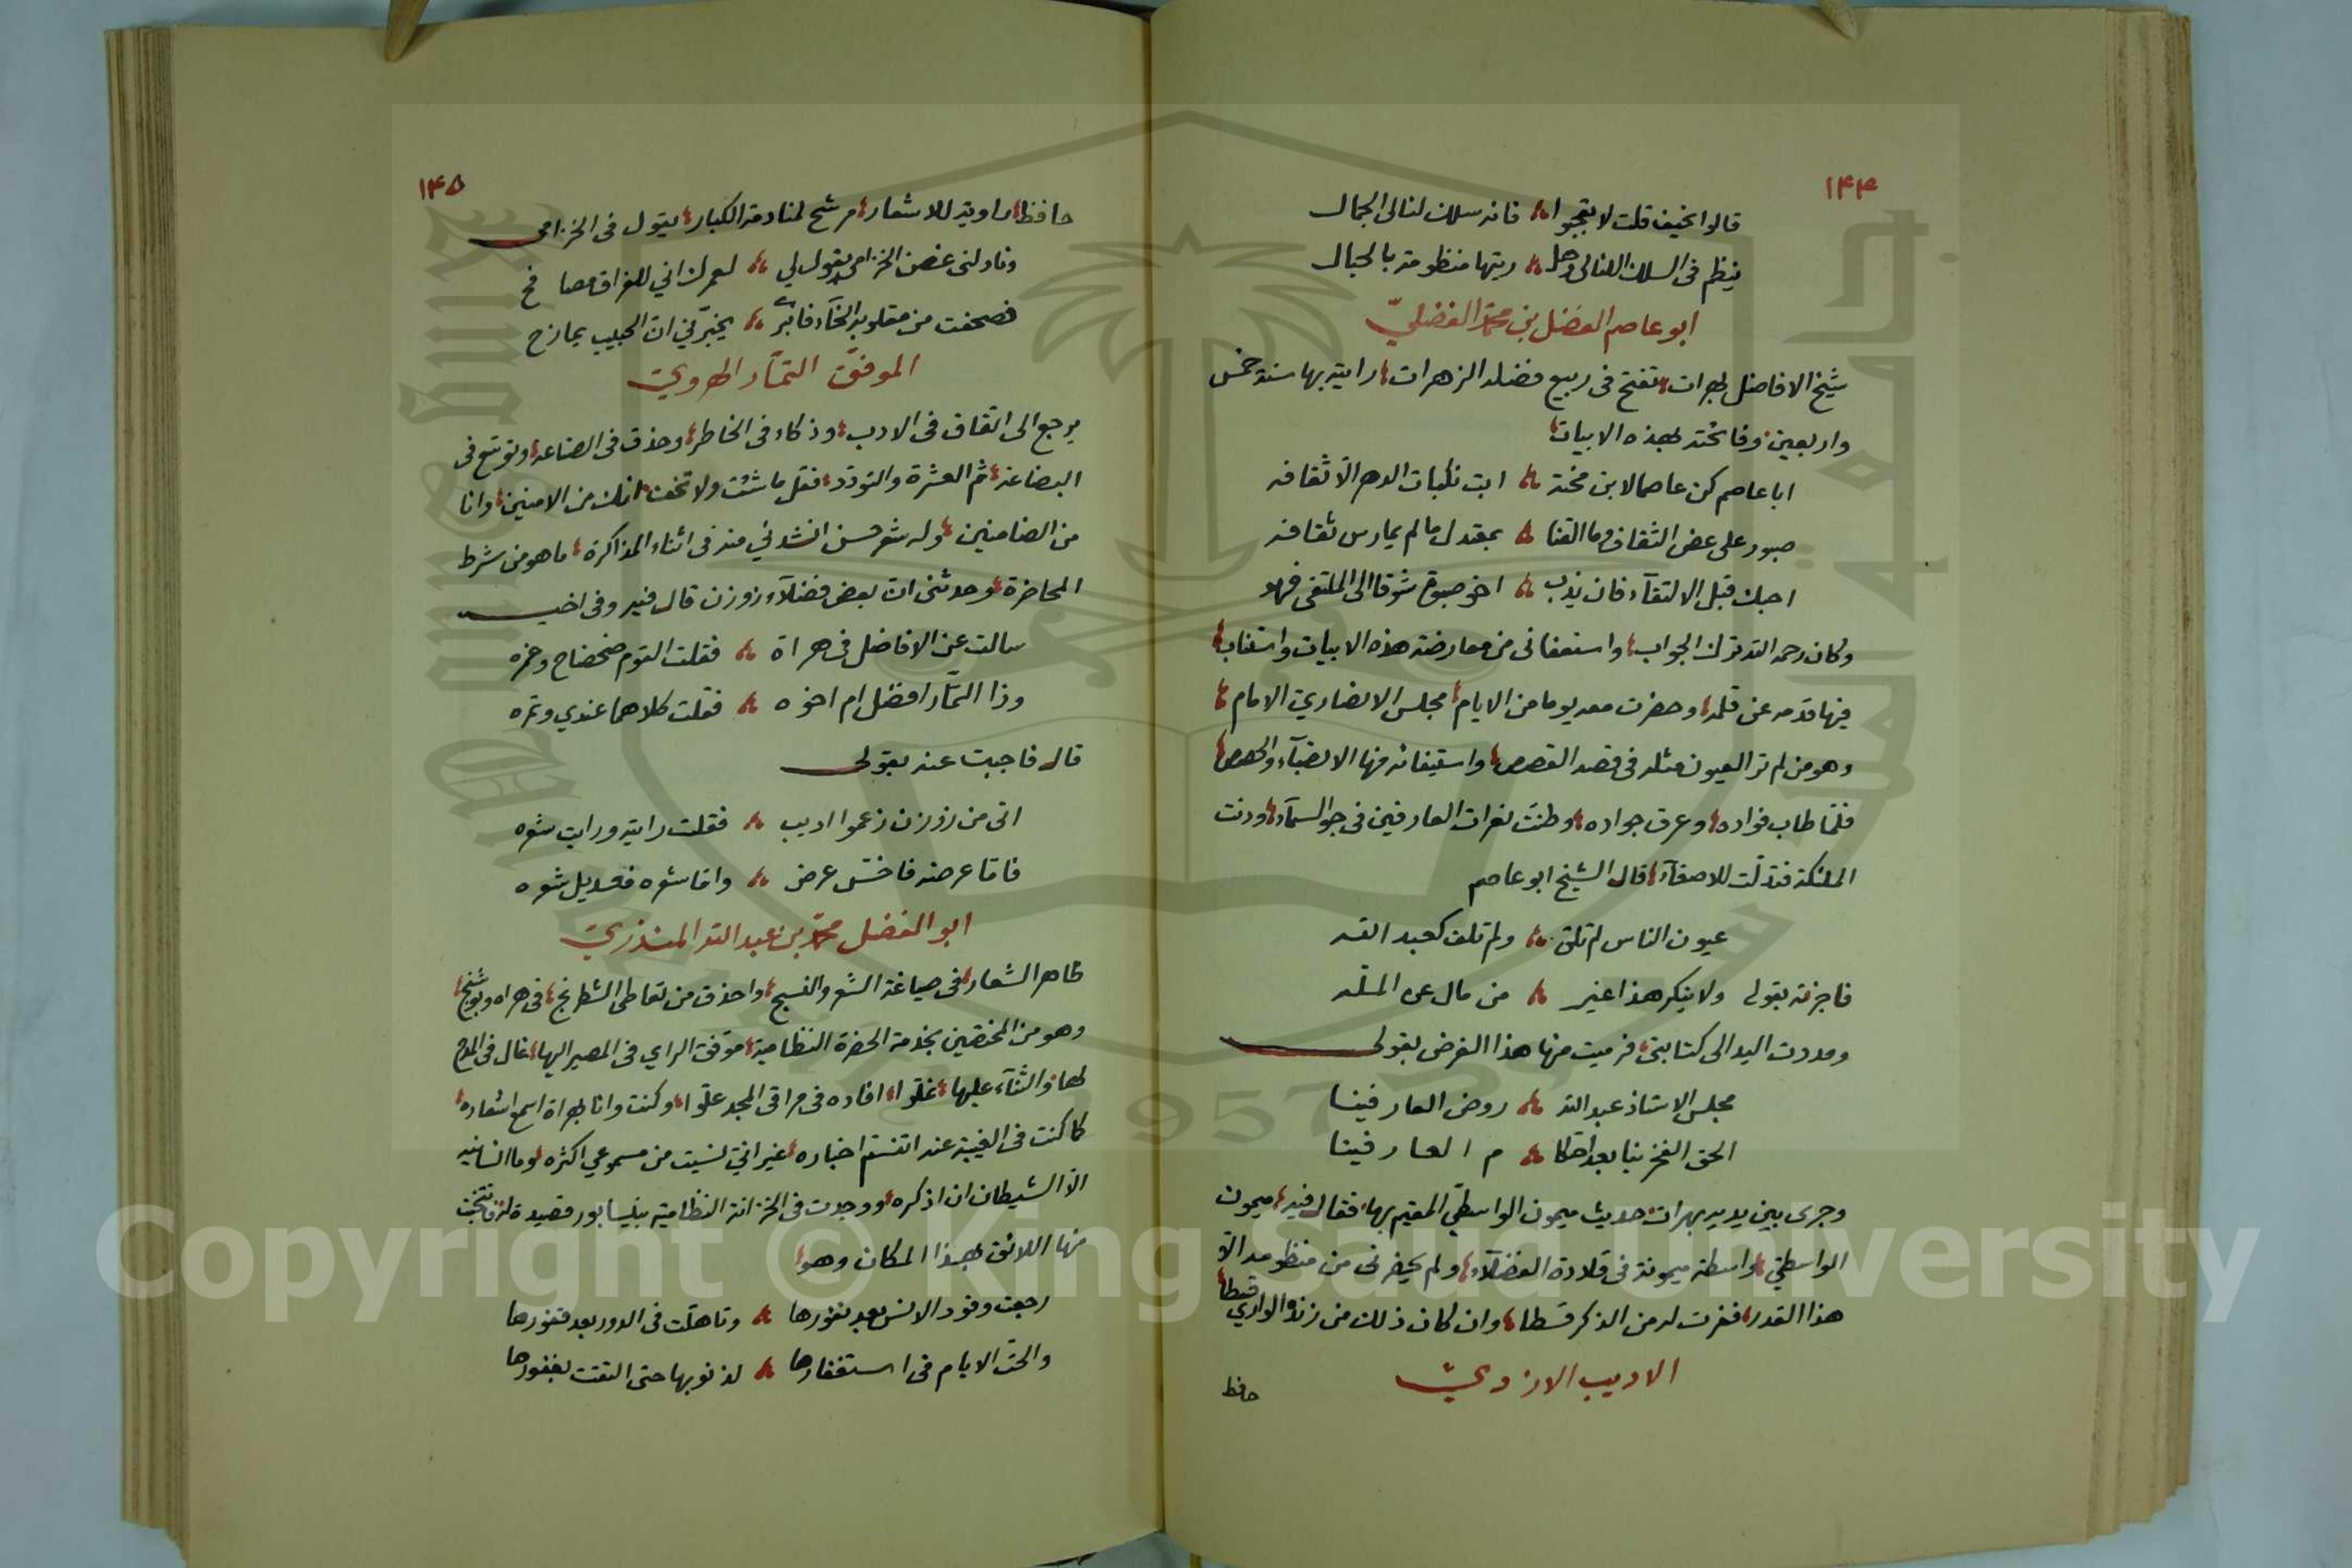 ١٤٤
قالوا نحيف قلت لا تعجبوا فانه سلك لنا لى الجمال
ينظم فى السلك اللئالى وهل ريتها منظومة بالحبال
ابو عاصم الفضل بن محمد الفضلي
شيخ الافاضل بهراة تفتح فى ربيع فضله الزهرات رايته بها سنة خمس
واربعين وفاتحته بهذه الابيات
ابا عاصم كن عاصما لابن محنة ابت نكبات الدهر الا ثقافه
صبور على عض الثقاف وما القنا بمعتدل ما لم يمارس ثقافه
احبك قبل الالتقاء فان يذب اخو صبوة شوقا الى الملتقى فهو
وكان رحمه الله ترك الجواب واستعفانى من معارضة هذه الابيات واستناب
فيها قدمه عن قلمه وحضرت معه يوما من الايام مجلس الانصاري الامام
وهو من لم تر العيون مثله فى قصه القصص واستيفائه منها الانصباء والحصص
فلما طاب فواده وعرق جواده وطنت نعرات العارفين فى جو السماء ودنت
الملئكة فتدلت للاصغاء قال الشيخ ابو عاصم
عيون الناس لم تلق ولم تلف كعبد الله
فاجزته بقولى ولا ينكر هذا غير من مال عن المله
ومددت اليد الى كتابتى فرميت منها هذا الغرض بقولى
مجلس الاستاذ عبد الله روض العارفينا
الحق الفخر بنا بعد احكا م العارفينا
وجرى بين يديه بهراة حديث ميمون الواسطي المقيم بها فقال فيه ميمون
الواسطي واسطة ميمونة فى قلادة الفضلاء ولم يحضرنى من منظومه الا
هذا القدر ففرت له من الذكر قسطا وان كان ذلك من زنده الواري قبطا
الاديب الازدي
حافظ
١٤٥
حافظ راوية للاشعار مرشح لمنادمة الكبار يقول فى الخزامى
وناولنى غصن الخزامى يقول لي لعمرك اني للفراق مصا فح
فصحفت من مقلوبه الخاء فابرى يخبرني ان الحبيب يمازح
الموفق التمار الهروي
يرجع الى اتقاق فى الادب وذكاء فى الخاطر وحذق فى الصناعة وتوسع فى
البضاعة ثم العشرة والتودد فقل ما شئت ولا تخف انك من الامنين وانا
من الضامنين وله شعر حسن انشدني منه فى اثناء المذاكرة ما هو من شرط
المحاضرة وحدثنى ان بعض فضلاء زوزن قال فيه وفى اخيه
سالت عن الافاضل فى هراة فقلت القوم ضحضاح وغمره
وذا التمار افضل ام اخوه فقلت كلاهما عندي وتمره
قال فاجبت عنه بقولى
اتى من زوزن زعموا اديب فقلت رايته ورايت شعره
فاما عرضه فاخس عرض واما شعره فعديل شعره
ابو الفضل محمد بن عبد الله المنذري
ظاهر الشعار فى صياغة الشعر والنسج واحذق من تعاطى الشطرنج فى هراه وبوشنج
وهو من المختصين بخدمة الحضرة النظامية موفق الراي فى المصير اليها غال فى المدح
لها والثناء عليها غلوا افاده فى مراقى المجد علوا وكنت وانا بهراة اسمع اشعاره
كما كنت فى الغيبة عنه اتنسم اخباره غير انى نسيت من مسموعي اكثره وما انسانيه
الا الشيطان ان اذكره ووجدت فى الخزانة النظامية بنيسابور قصيدة له فانتخبت
منها اللائق بهذا المكان وهو
رجعت وفود الانس بعد نفورها وتاهلت فى الدور بعد قفورها
والحت الايام فى استغفارها لذنوبها حتى التقت بغفورها
Copyright © King Saud University
King Saud University
1957